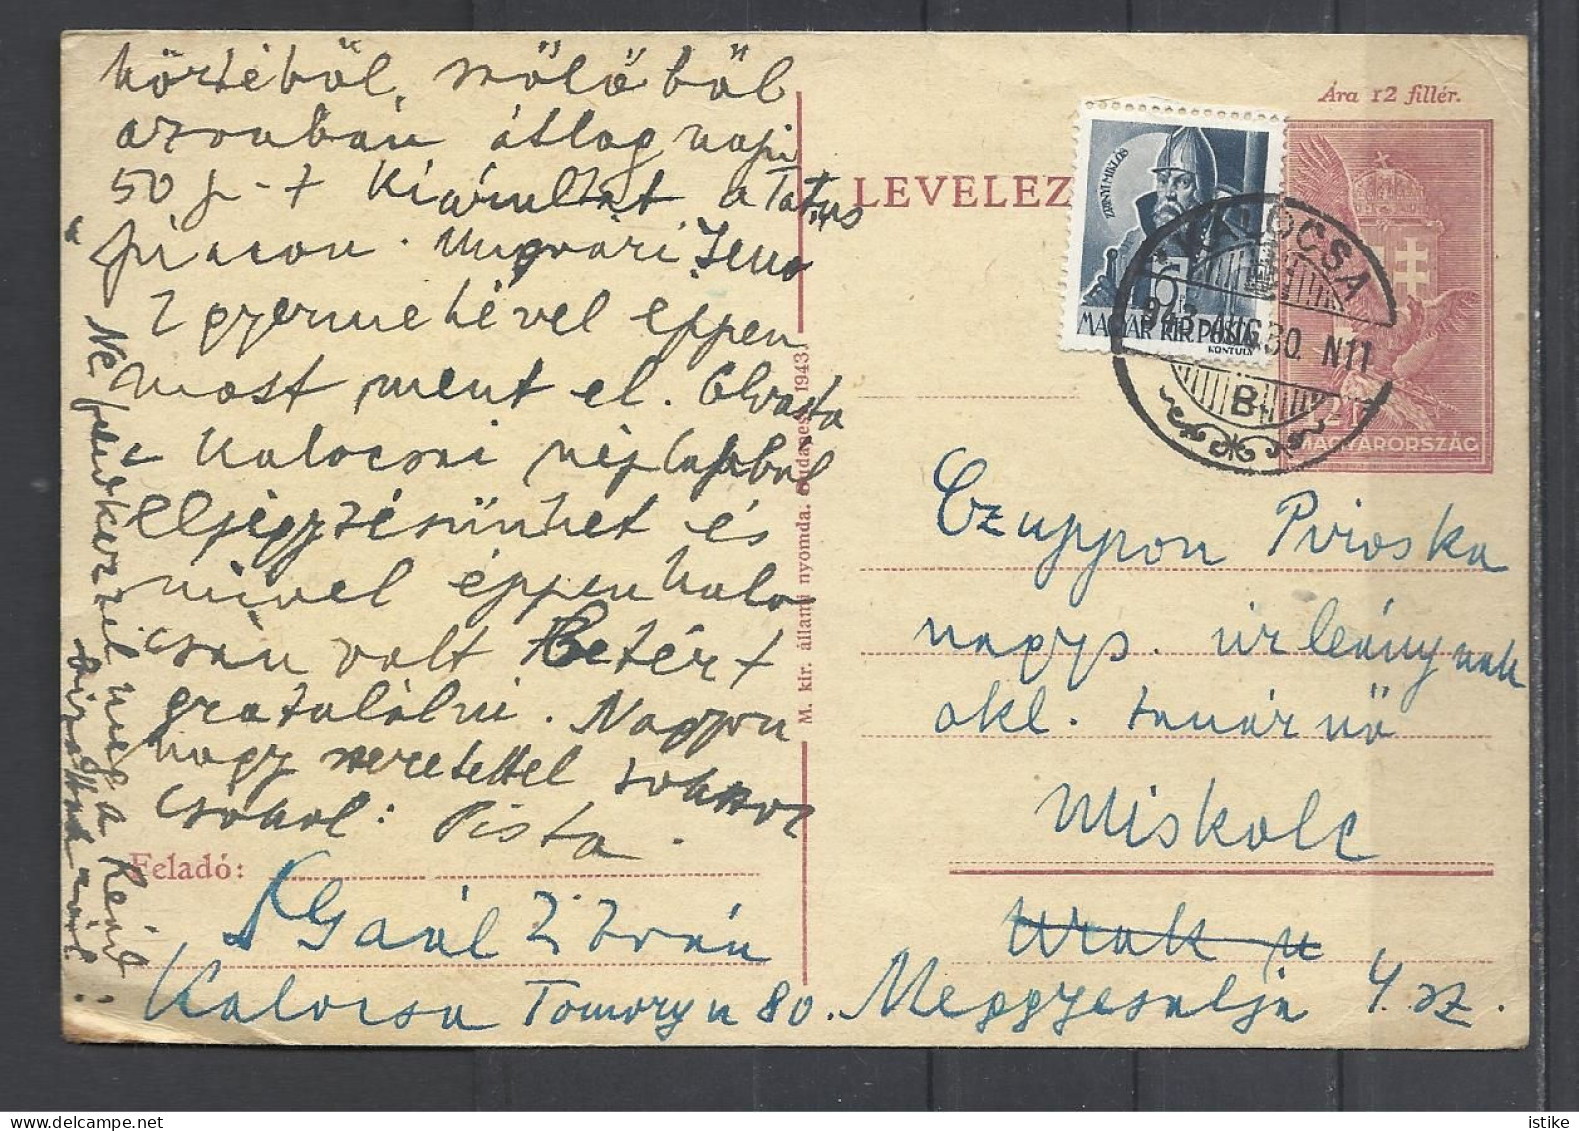 körtéből, szőlőből
azonban átlag napi
50 p-t kiárultat a
piacon. Ungvári Jenő
2 gyermekével éppen
most ment el. Olvasta
a Kalocsai néplapból
eljegyzésünket és
mivel éppen Kalo
csán volt Betért
gratulálni. Nagyon
nagy szeretettel sokszor
csókol: Pista.
Ne feledkezzél meg a
Feladó:
Gaál István
Kalocsa Tomory u 80.
M. kir. állami nyomda. Budapest, 1943.
Ára 12 fillér.
LEVELEZ
ZRINYI MIKLÓS
6
MAGYAR KIR. POSTA
KONTULY
KALOCSA
943 AUG. 30. N11
B
MAGYARORSZÁG
Czuppon Piroska
nagys. úrleánynak
okl. tanárnő
Miskolc
Meggyesalja 4. sz.
© istike